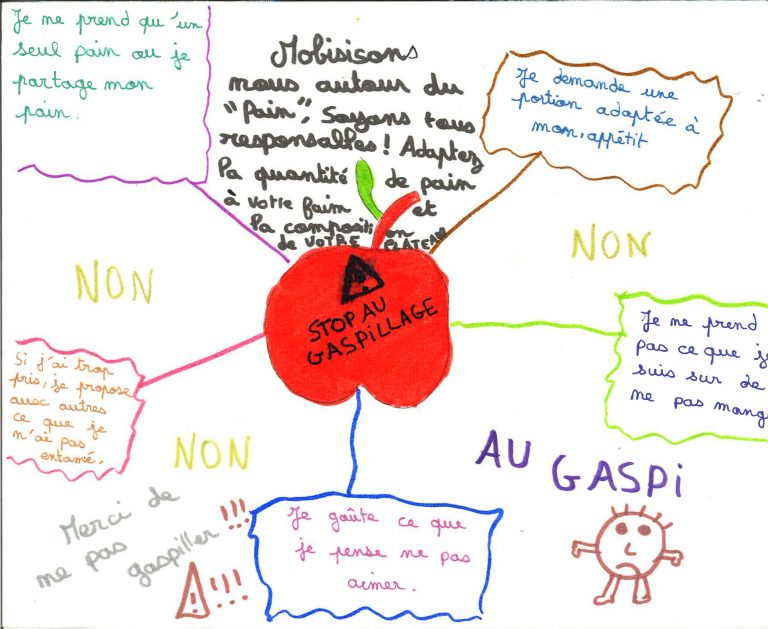 Je ne prend qu'un
seul pain ou je
partage mon
pain.
Mobisisons
nous autour du
"Pain", Soyons tous
responsables ! Adaptez
la quantité de pain
à votre faim et
la composition
de VOTRE PLATEAU
Je demande une
portion adaptée à
mon appétit
NON
NON
STOP AU
GASPILLAGE
Je ne prend
pas ce que je
suis sur de
ne pas mange
Si j'ai trop
pris, je propose
aux autres
ce que je
n'ai pas
entamé.
NON
AU GASPI
Merci de
ne pas
gaspiller !!!
!!!
Je goûte ce que
je pense ne pas
aimer.